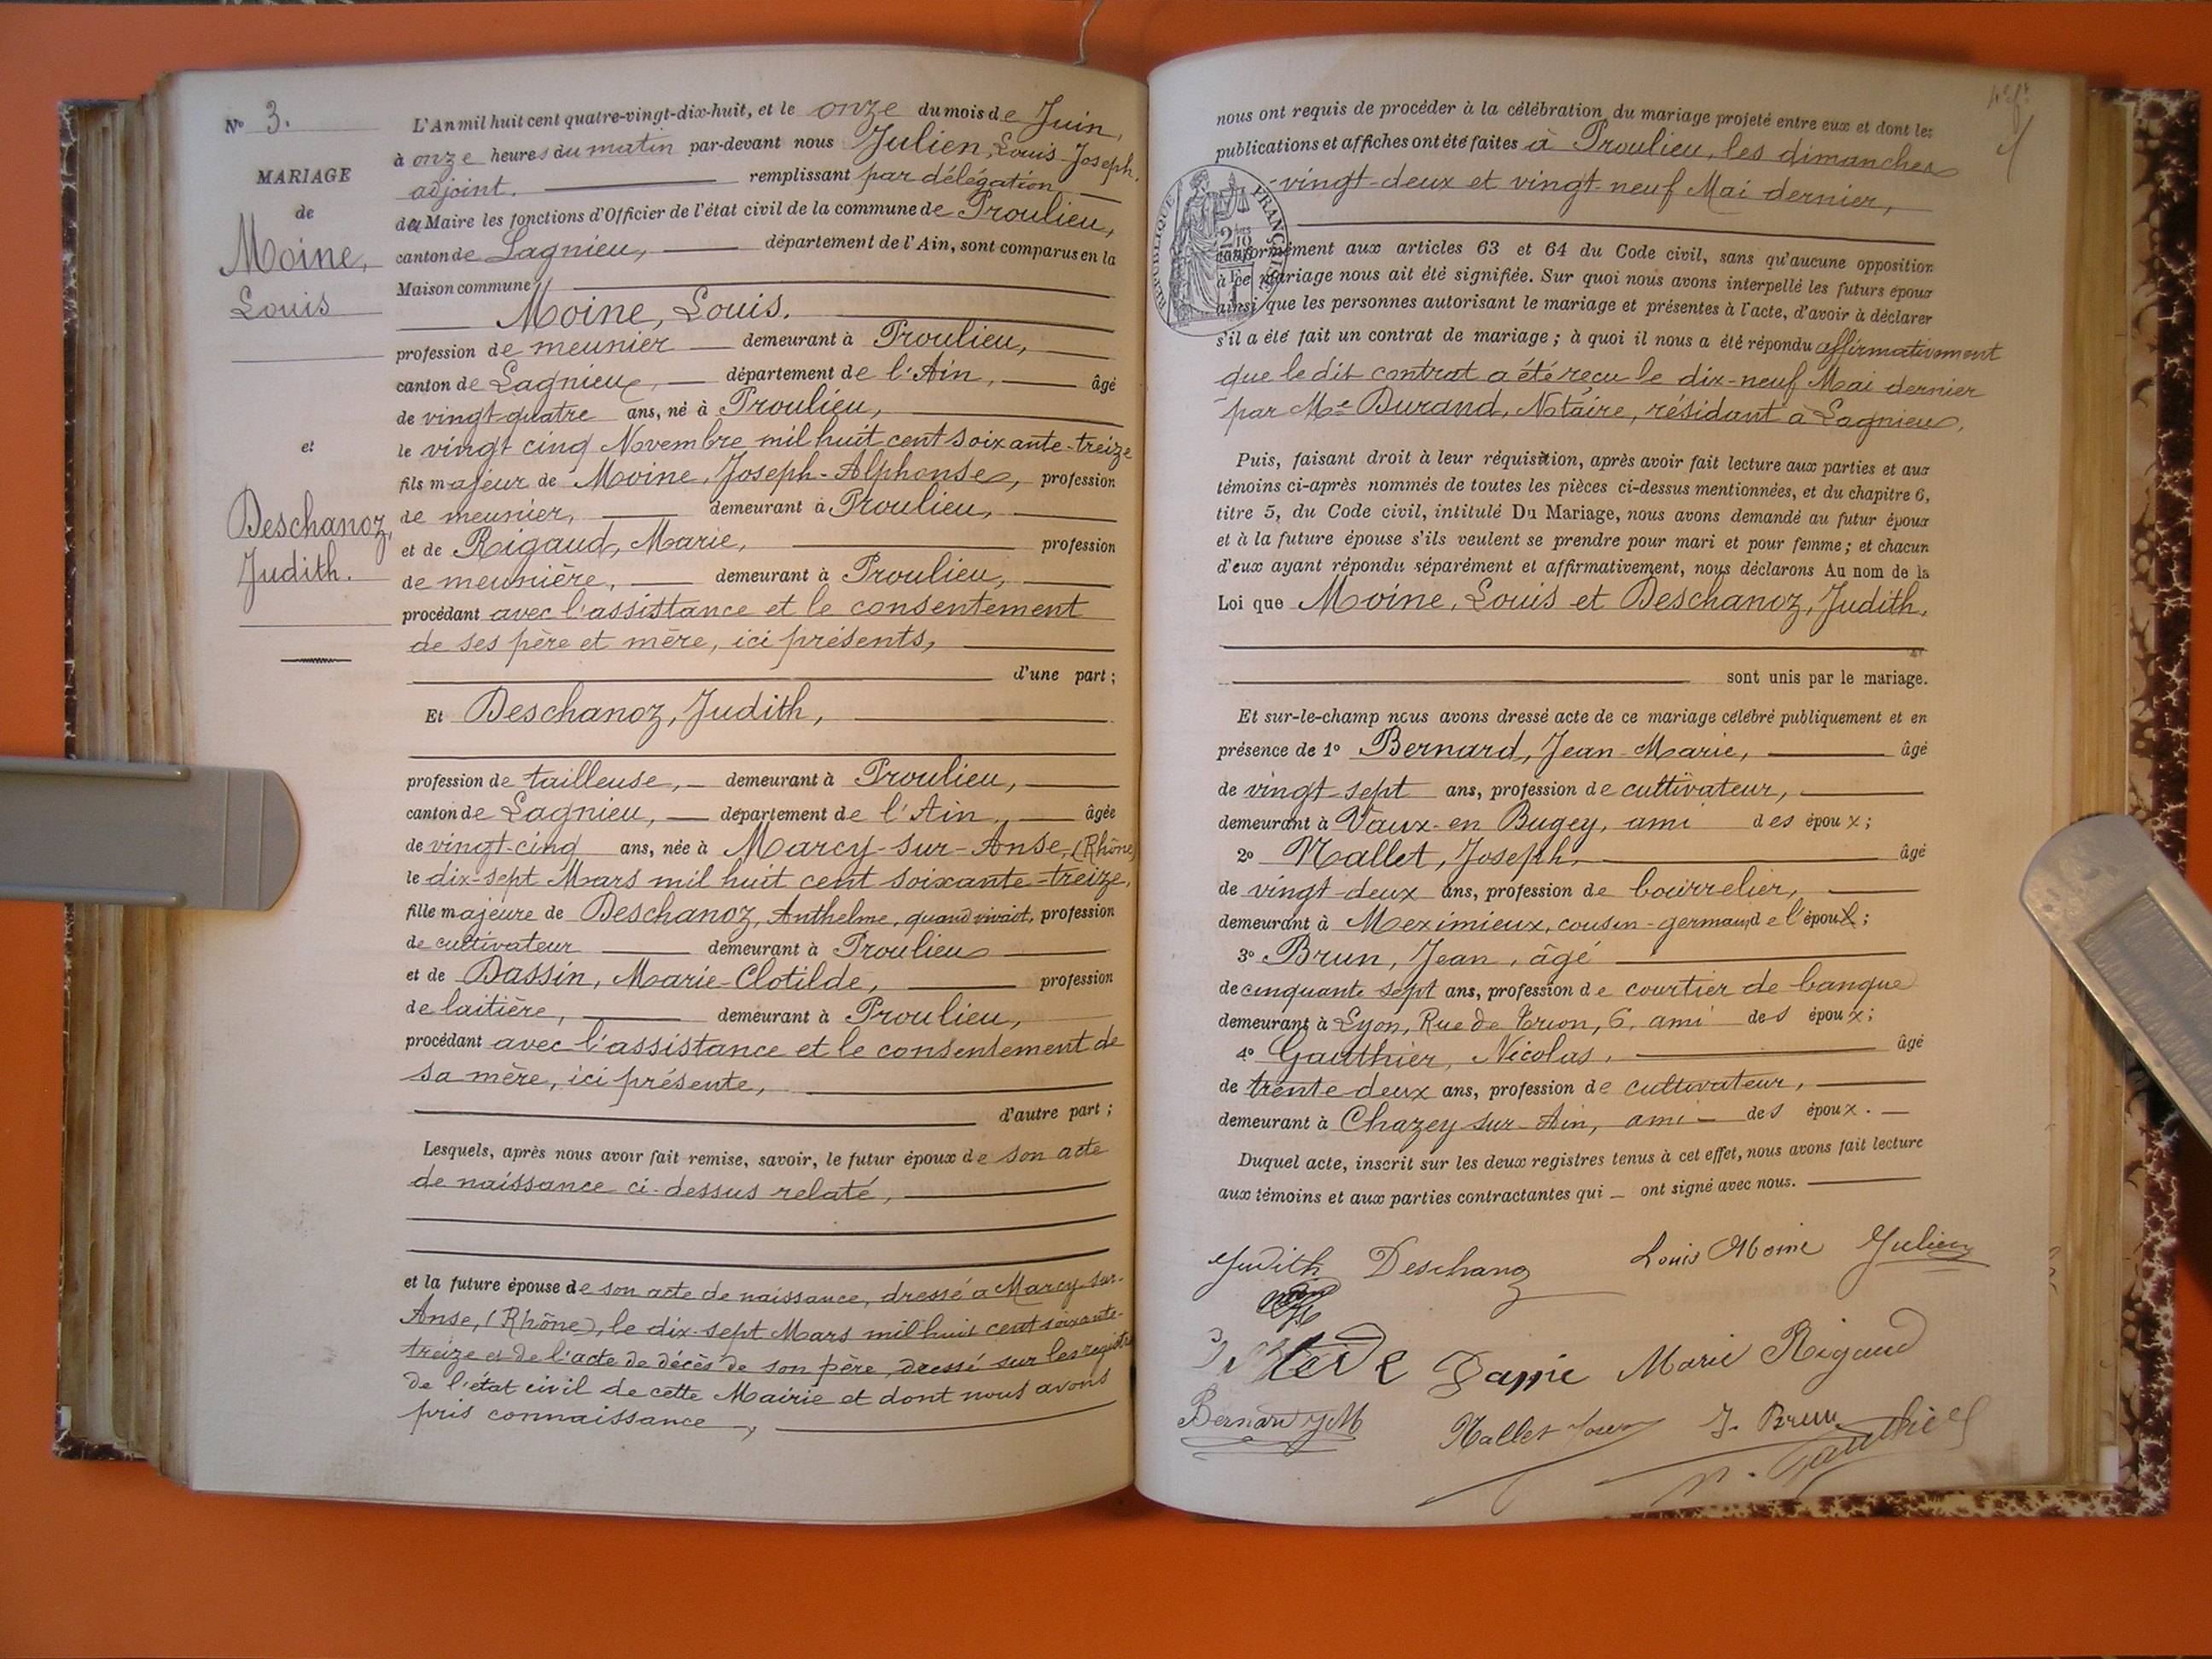 N° 3.
MARIAGE
de
Moine,
Louis
et
Deschanoz,
Judith.
L'An mil huit cent quatre-vingt-dix-huit, et le onze du mois de Juin,
à onze heures du matin par-devant nous Julien, Louis Joseph,
adjoint, remplissant par délégation
du Maire les fonctions d'Officier de l'état civil de la commune de Proulieu,
canton de Lagnieu, département de l'Ain, sont comparus en la
Maison commune
Moine, Louis.
profession de meunier demeurant à Proulieu,
canton de Lagnieu, département de l'Ain, âgé
de vingt-quatre ans, né à Proulieu,
le vingt cinq Novembre mil huit cent soixante-treize
fils majeur de Moine, Joseph-Alphonse, profession
de meunier, demeurant à Proulieu,
et de Rigaud, Marie, profession
de meunière, demeurant à Proulieu,
procédant avec l'assistance et le consentement
de ses père et mère, ici présents,
d'une part ;
Et Deschanoz, Judith,
profession de tailleuse, demeurant à Proulieu,
canton de Lagnieu, département de l'Ain, âgée
de vingt-cinq ans, née à Marcy-sur-Anse, (Rhône)
le dix-sept Mars mil huit cent soixante-treize,
fille majeure de Deschanoz, Anthelme, quand vivait, profession
de cultivateur demeurant à Proulieu
et de Dassin, Marie-Clotilde, profession
de laitière, demeurant à Proulieu,
procédant avec l'assistance et le consentement de
sa mère, ici présente,
d'autre part ;
Lesquels, après nous avoir fait remise, savoir, le futur époux de son acte
de naissance ci-dessus relaté,
et la future épouse de son acte de naissance, dressé à Marcy-sur-
Anse, (Rhône), le dix-sept Mars mil huit cent soixante-
treize et de l'acte de décès de son père, dressé sur les registres
de l'état civil de cette Mairie et dont nous avons
pris connaissance,
nous ont requis de procéder à la célébration du mariage projeté entre eux et dont les
publications et affiches ont été faites à Proulieu, les dimanches
vingt-deux et vingt-neuf Mai dernier,
RÉPUBLIQUE FRANÇAISE
conformément aux articles 63 et 64 du Code civil, sans qu'aucune opposition
à ce mariage nous ait été signifiée. Sur quoi nous avons interpellé les futurs époux
ainsi que les personnes autorisant le mariage et présentes à l'acte, d'avoir à déclarer
s'il a été fait un contrat de mariage ; à quoi il nous a été répondu affirmativement
que le dit contrat a été reçu le dix-neuf Mai dernier
par Me Durand, Notaire, résidant à Lagnieu,
Puis, faisant droit à leur réquisition, après avoir fait lecture aux parties et aux
témoins ci-après nommés de toutes les pièces ci-dessus mentionnées, et du chapitre 6,
titre 5, du Code civil, intitulé Du Mariage, nous avons demandé au futur époux
et à la future épouse s'ils veulent se prendre pour mari et pour femme ; et chacun
d'eux ayant répondu séparément et affirmativement, nous déclarons Au nom de la
Loi que Moine, Louis et Deschanoz, Judith,
sont unis par le mariage.
Et sur-le-champ nous avons dressé acte de ce mariage célébré publiquement et en
présence de 1° Bernard, Jean-Marie, âgé
de vingt-sept ans, profession de cultivateur,
demeurant à Vaux-en Bugey, ami des époux ;
2° Mallet, Joseph, âgé
de vingt-deux ans, profession de bourrelier,
demeurant à Meximieux, cousin-germain de l'époux ;
3° Brun, Jean, âgé
de cinquante sept ans, profession de courtier de banque
demeurant à Lyon, Rue de Trion, 6, ami des époux ;
4° Gauthier, Nicolas, âgé
de trente deux ans, profession de cultivateur,
demeurant à Chazey sur-Ain, ami des époux.
Duquel acte, inscrit sur les deux registres tenus à cet effet, nous avons fait lecture
aux témoins et aux parties contractantes qui ont signé avec nous.
Judith Deschanoz Louis Moine Julien
Marie Rigaud
Bernard JM Mallet J. Brun
N. Gauthier